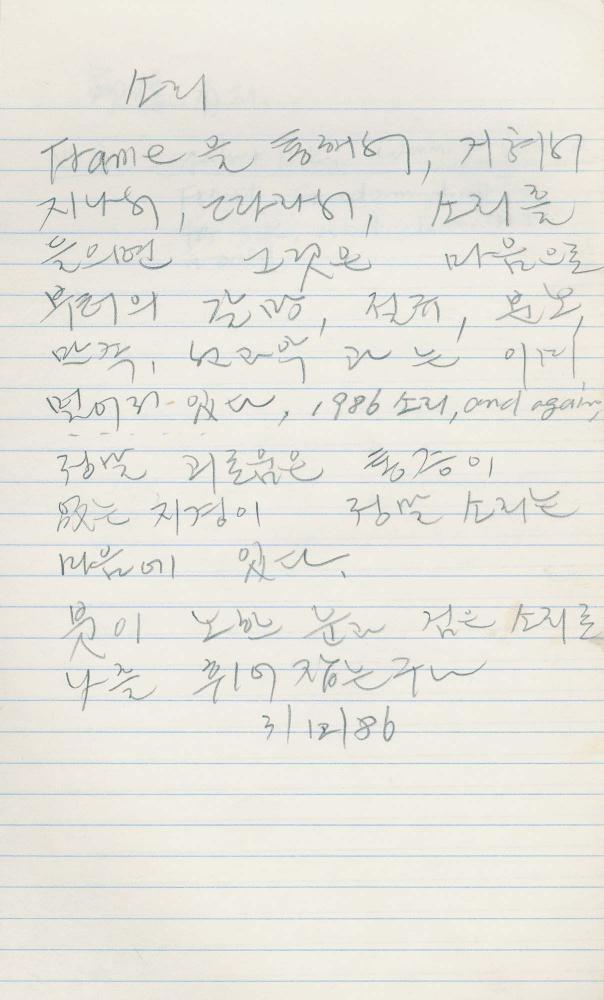 소리
Frame 을 통해서, 거쳐서
지나서, 따라서, 소리를
들의면 그것은 마음으로
부터의 갈망, 절규, 분노,
만족, 과 는 이미
멀어져 있다, 1986 소리, and again,
정말 괴로움은 통증이
없는 지경이 정말 소리는
마음에 있다.
붓이 노한 검은 소리로
나를 휘어 잡는구나
3/12/86